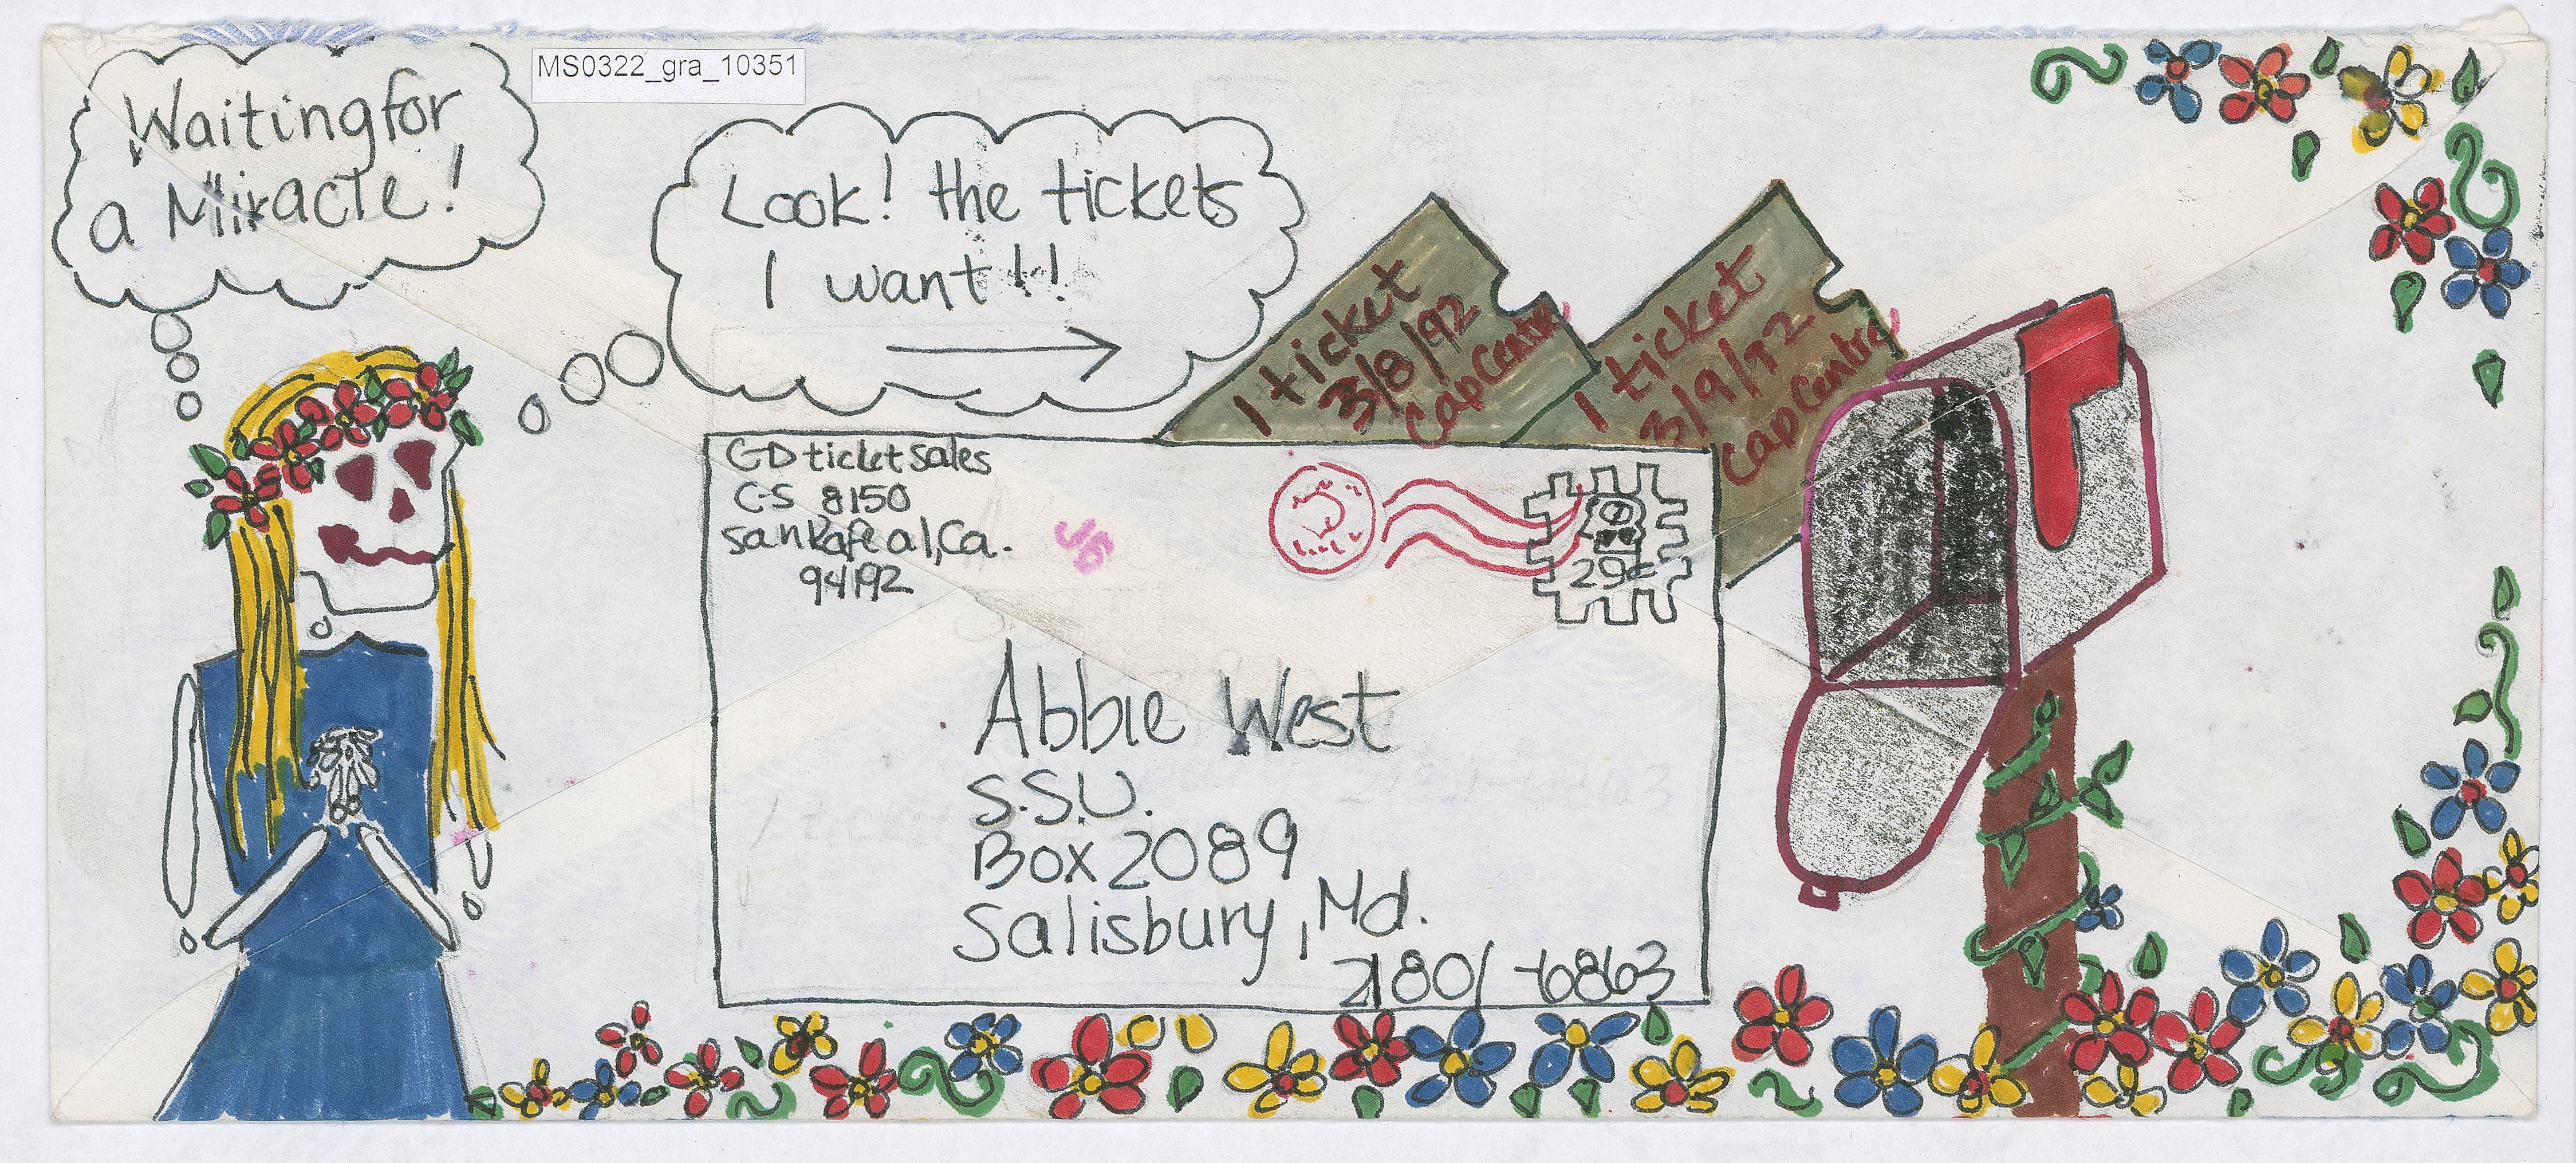 MS0322_gra_10351
Waiting for
a Miracle!
Look! the tickets
I want!!
1 ticket
3/8/92
Cap Centre
1 ticket
3/9/92
Cap Centre
GD ticket sales
CS 8150
san Rafeal, Ca.
94192
J6
29¢
Abbie West
S.S.U.
Box 2089
Salisbury, Md.
21801-6863